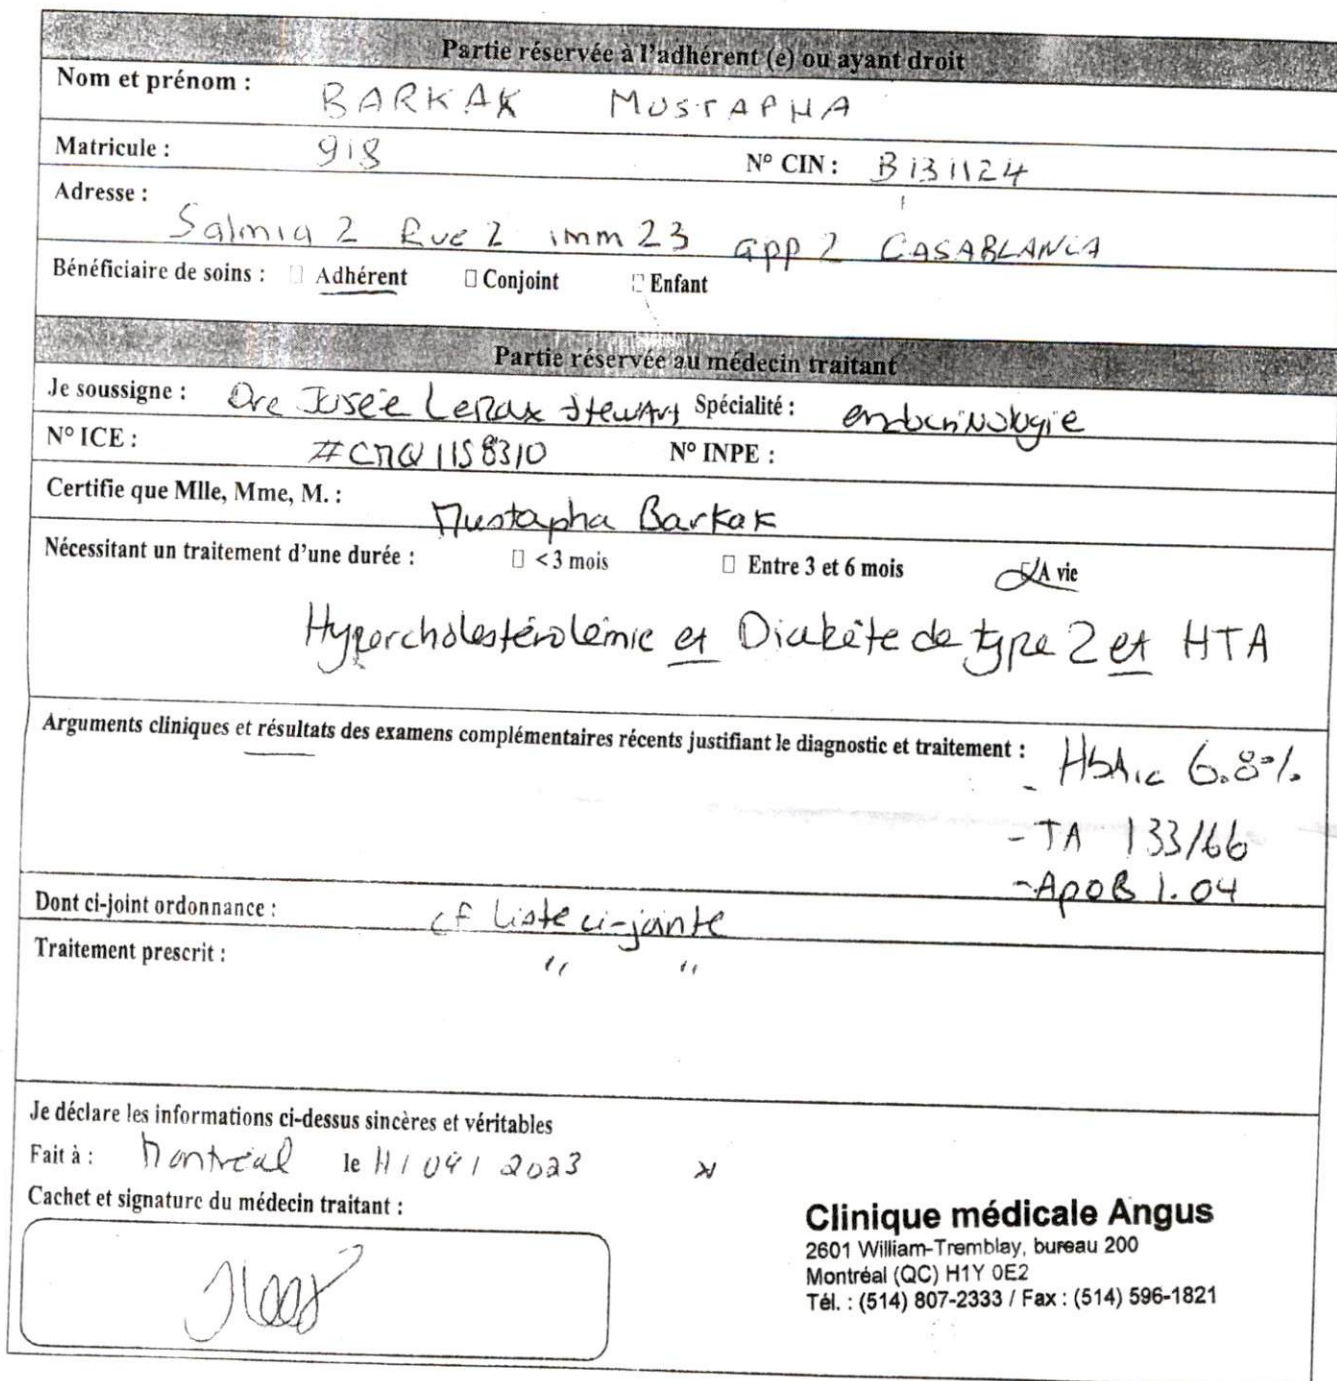 Partie réservée à l'adhérent (e) ou ayant droit
Nom et prénom : BARKAK MUSTAPHA
Matricule : 918 N° CIN : B131124
Adresse :
Salmia 2 Rue 2 imm 23 app 2 CASABLANCA
Bénéficiaire de soins : □ Adhérent □ Conjoint □ Enfant
Partie réservée au médecin traitant
Je soussigne : Dre Josée Leroux Stewart Spécialité : endocrinologie
N° ICE : #CMQ 1158310 N° INPE :
Certifie que Mlle, Mme, M. : Mustapha Barkak
Nécessitant un traitement d'une durée : □ < 3 mois □ Entre 3 et 6 mois A vie
Hypercholestérolémie et Diabète de type 2 et HTA
Arguments cliniques et résultats des examens complémentaires récents justifiant le diagnostic et traitement : - HbA1c 6.8%
- TA 133/66
- ApoB 1.04
Dont ci-joint ordonnance : cf liste ci-jointe
Traitement prescrit : " "
Je déclare les informations ci-dessus sincères et véritables
Fait à : Montréal le 11 / 04 / 2023
Cachet et signature du médecin traitant :
Clinique médicale Angus
2601 William-Tremblay, bureau 200
Montréal (QC) H1Y 0E2
Tél. : (514) 807-2333 / Fax : (514) 596-1821